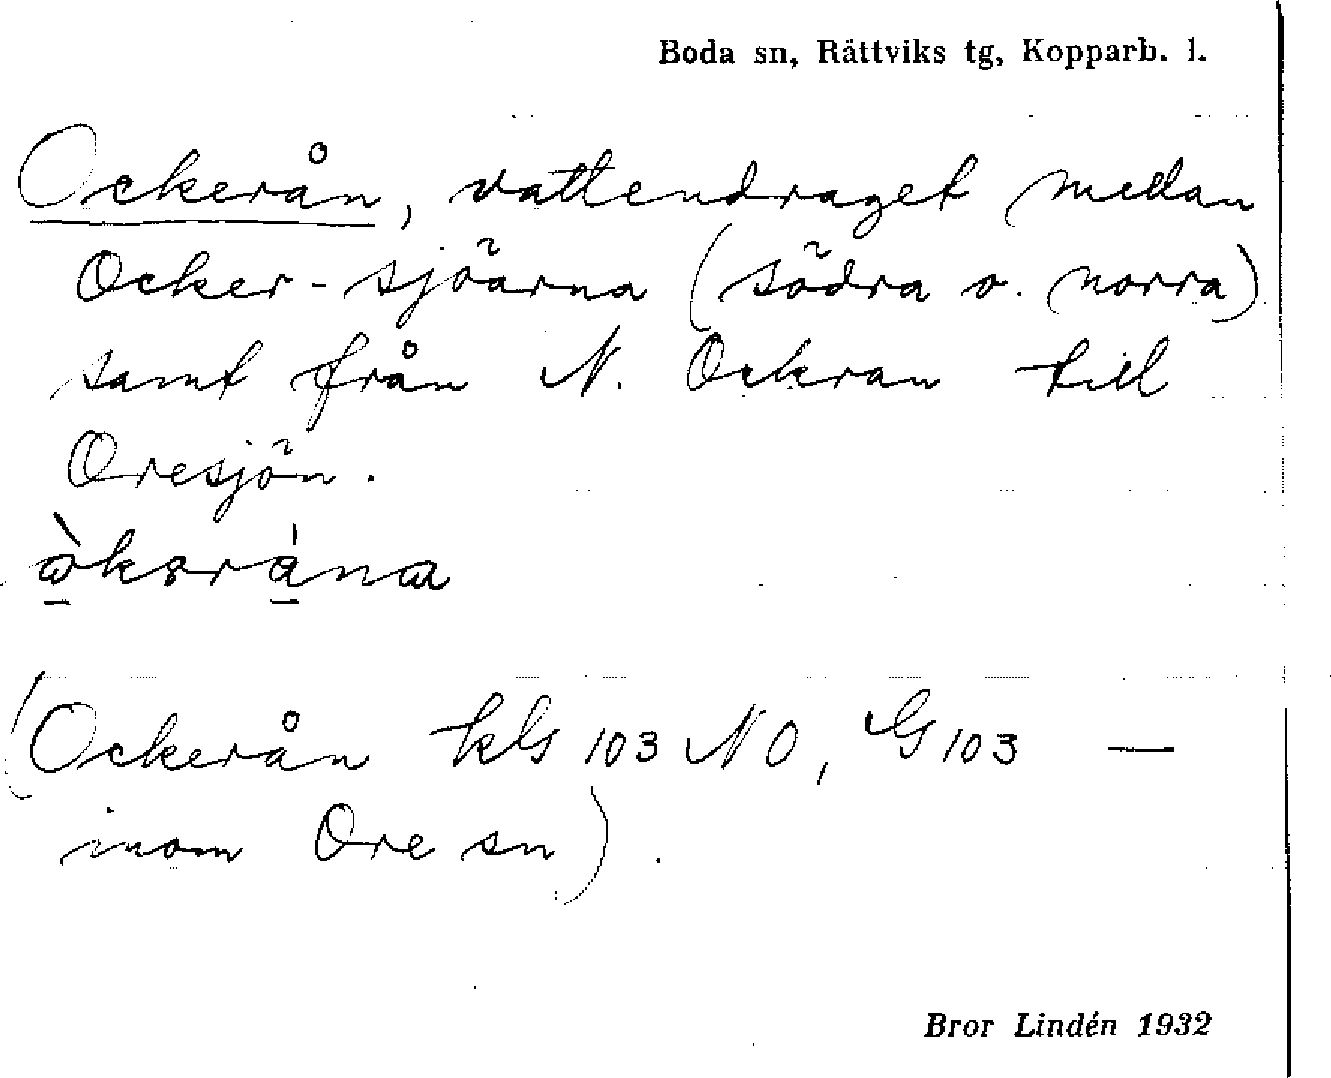 Boda sn, Rättviks tg, Kopparb. l.
Ockerån, vattendraget mellan
Ocker-sjöarna (södra o. norra)
samt från N. Ockran till
Oresjön.
(Ockerån kbl 103 NO, G 103 —
inom Ore sn).
Bror Lindén 1932